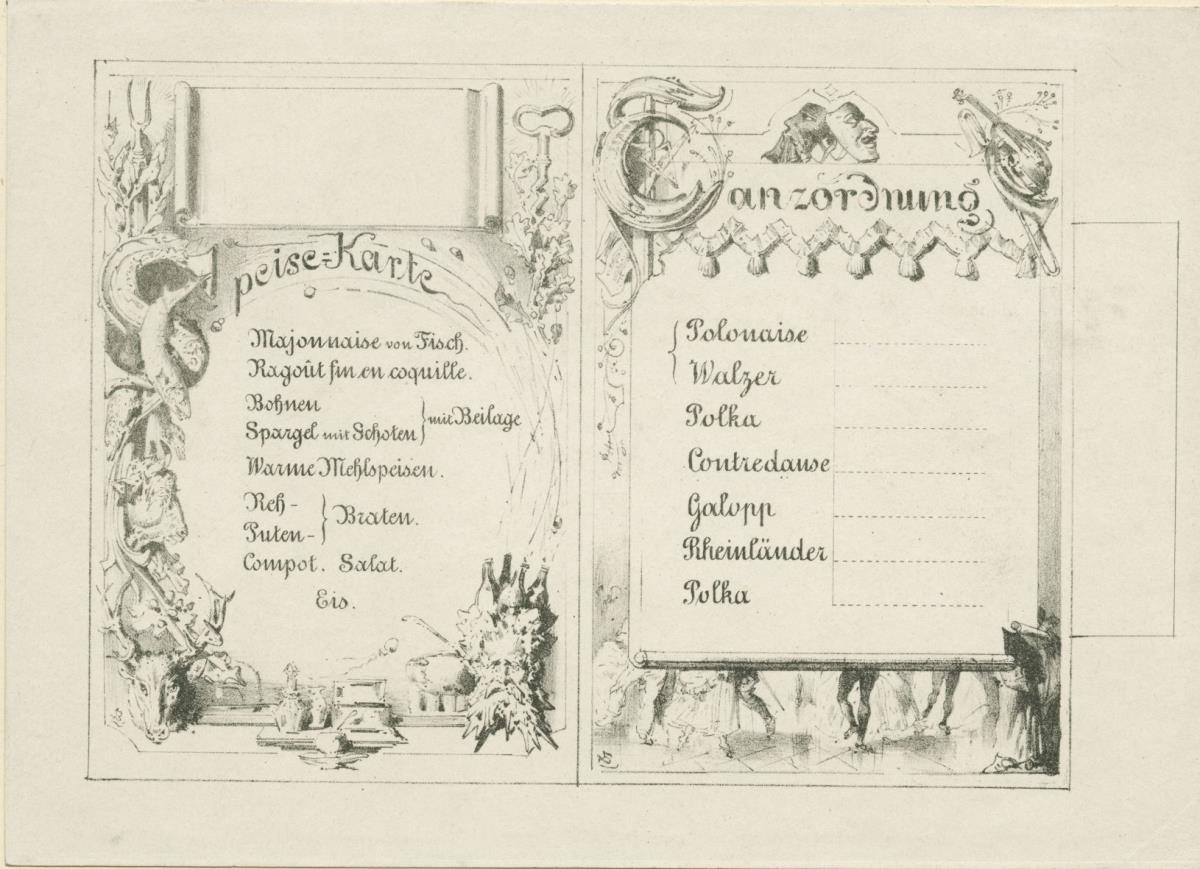 Speise-Karte
Majonnaise von Fisch.
Ragoût fin en coquille.
Bohnen
Spargel mit Schoten } mit Beilage
Warme Mehlspeisen.
Reh-
Puten- } Braten.
Compot. Salat.
Eis.
Tanzordnung
{ Polonaise
Walzer
Polka
Contredanse
Galopp
Rheinländer
Polka